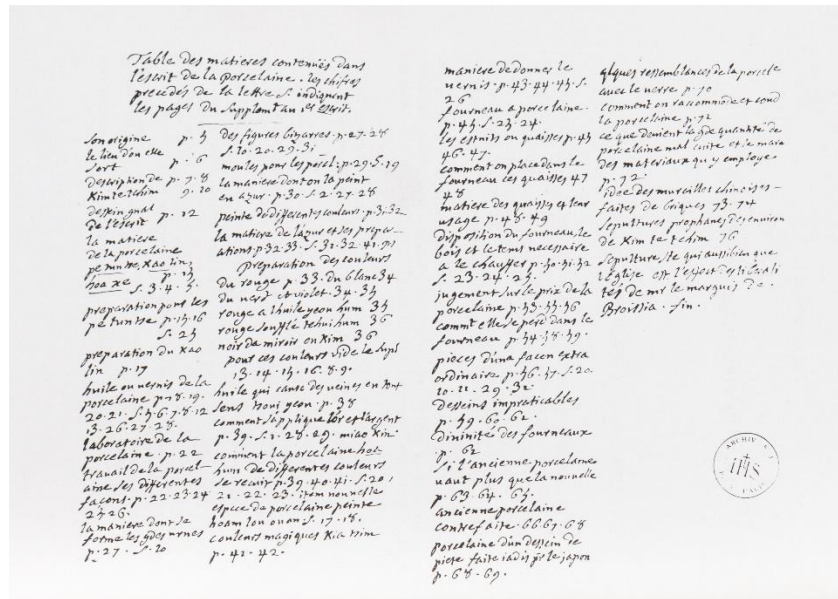 Table des matieres contenuës dans
l'escrit de la porcelaine. les chifres
precedés de la lettre S. indiquent
les pages du Supplemt au 1er escrit.
son origine p. 5
le lieu d'ou elle
sort p. 6
description de p. 7. 8
Kim te tchim 9. 10
dessein gnal
de l'escrit p. 12
la matiere
de la porcelaine
pe tun tse, Kao lin,
hoa xe p. 13
S. 3. 4. 5.
preparation pour les
pe tuntse p. 15. 16
S. 25
preparation du Kao
lin p. 17
huile ou vernis de la
porcelaine p. 18. 19.
20. 21. S. 5. 6. 7. 8. 12
13. 26. 27. 28.
laboratoire de la
porcelaine p. 22
travail de la porcel-
aine ses differentes
façons. p. 22. 23. 24
25. 26.
la maniere dont se
forme les gdes urnes
p. 27. S. 20
Des figures bizarres. p. 27. 28
S. 10. 20. 29. 31
moules pour les porcel: p. 29. S. 19
la maniere dont on la peint
en azur. p. 30. S. 2. 27. 28
peinte de differentes couleurs. p. 31. 32
la matiere de l'azur et ses prepar-
ations. p. 32. 33. S. 31. 32. 41.
preparation des couleurs
du rouge p. 33. du blanc 34
du verd et violet. 34. 35
rouge a l'huile yeou hum 35
rouge soufflé tchui hum 36
noir de miroir ou Kim 36
pour ces couleurs vide le Supl
13. 14. 15. 16. 8. 9.
huile qui cause des veines en tout
sens tsoui yeou. p. 38
comment s'applique l'or et l'argent
p. 39. S. 1. 28. 29. miao Kin
comment la porcelaine hoa
hum de differentes couleurs
se recuit p. 39. 40. 41. S. 20.
21. 22. 23. item nouvelle
espece de porcelaine peinte
hoam lou ouan. S. 17. 18.
couleurs magiques Kia tsim
p. 41. 42.
maniere de donner le
vernis. p. 43. 44. 45. S.
26
fourneau a porcelaine.
p. 45. S. 23. 24.
les estuits ou quaisses p. 45
46. 47.
comment on place dans le
fourneau ces quaisses 47
48
matiere des quaisses et leur
usage p. 48. 49
disposition du fourneau, le
bois et le tems necessaire
a le chauffer p. 50. 51. 52
S. 23. 24. 25.
jugement sur le prix de la
porcelaine p. 53. 55. 56
commt elle se perd dans le
fourneau p. 54. 58. 59.
pieces d'une façon extra
ordinaire p. 56. 57. S. 20.
10. 11. 29. 32
desseins impraticables
p. 59. 60. 61.
divinité des fourneaux
p. 62
Si l'ancienne porcelaine
vaut plus que la nouvelle
p. 63. 64. 65.
ancienne porcelaine
contrefaite. 66. 67. 68
porcelaine d'un dessein de
pieté faite iadis pr le japon
p. 68. 69.
qlques ressemblances de la porcele
avec le verre p. 70
comment on raccommode et coud
la porcelaine p. 71
ce que devient la gde quantité de
porcelaine mal cuite et le marc
des materiaux qu'y employe
p. 72
idée des murailles chinoises -
faites de briques 73. 74
Sepultures prophanes des environ
de Kim te tchim 76
Sepulture, 
l'eglise est l'effect des liberali
tés de mr le marquis de
Broissia. fin.
ARCHIV S. I.
IHS